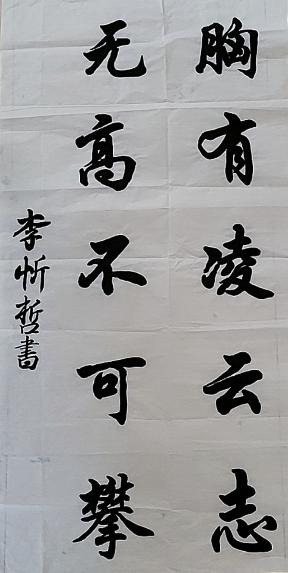 胸有凌云志
无高不可攀
李忻哲書